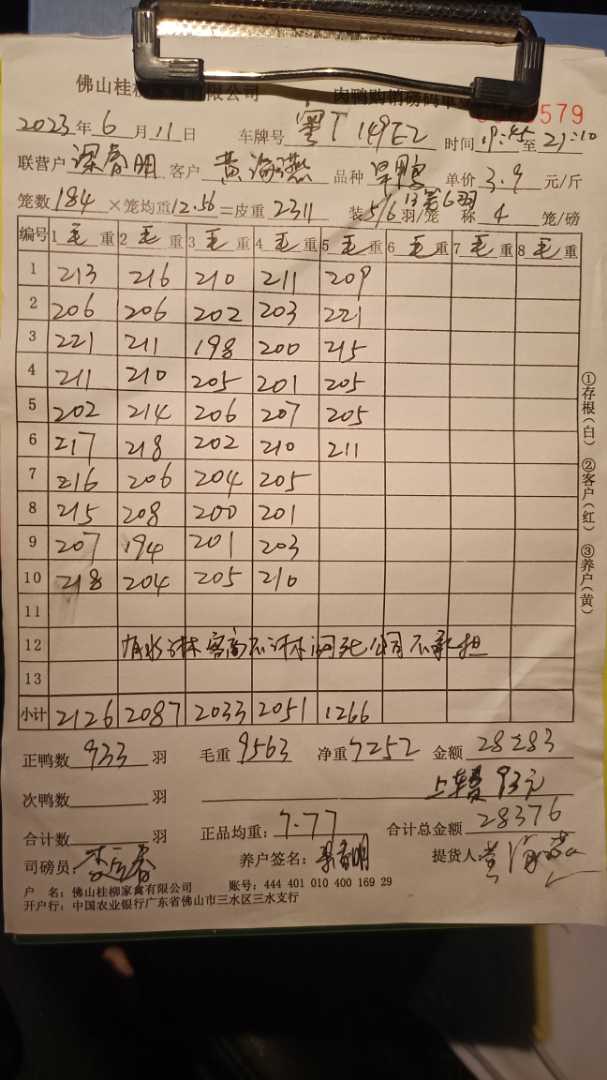 佛山桂柳家禽有限公司 肉鸭购销磅码单 579
2023年6月11日 车牌号 粤T 149E2 时间 19:45至21:10
联营户 客户 黄海燕 品种 旱鸭 单价 3.9 元/斤
13笼6羽
笼数 184 ×笼均重 12.56 =皮重 2311 装 5/6 羽/笼 称 4 笼/磅
编号 1 毛 重 2 毛 重 3 毛 重 4 毛 重 5 毛 重 6 毛 重 7 毛 重 8 毛 重
1 213 216 210 211 209
2 206 206 202 203 221
3 221 211 198 200 215
4 211 210 205 201 205
5 202 214 206 207 205
6 217 218 202 210 211
7 216 206 204 205
8 215 208 200 201
9 207 194 201 203
10 218 204 205 210
11
12 有水淋 客 不淋 死 公司不承担
13
小计 2126 2087 2033 2051 1266
正鸭数 933 羽 毛重 9563 净重 7252 金额 28283
次鸭数 羽 上车费 93元
合计数 羽 正品均重: 7.77 合计总金额 28376
司磅员: 养户签名: 提货人: 黄海燕
户 名: 佛山桂柳家禽有限公司 账号: 444 401 010 400 169 29
开户行: 中国农业银行广东省佛山市三水区三水支行
①存根(白) ②客户(红) ③养户(黄)